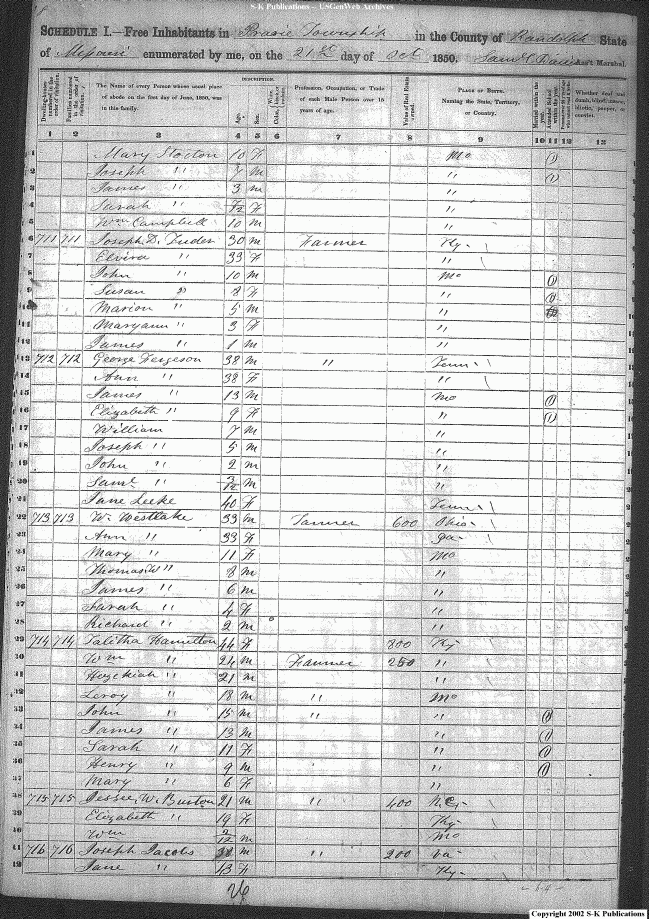 S-K Publications – USGenWeb Archives
SCHEDULE I.—Free Inhabitants in Prarie Township in the County of Randolph State
of Missouri enumerated by me, on the 21st day of Oct 1850. Saml Ass't Marshal.
Dwelling-houses numbered in the order of visitation.
Families numbered in the order of visitation.
The Name of every Person whose usual place of abode on the first day of June, 1850, was in this family.
DESCRIPTION.
Age.
Sex.
Color, White, black, or mulatto.
Profession, Occupation, or Trade of each Male Person over 15 years of age.
Value of Real Estate owned.
PLACE OF BIRTH. Naming the State, Territory, or Country.
Married within the year.
Attended School within the year.
Whether deaf and dumb, blind, insane, idiotic, pauper, or convict.
1 2 3 4 5 6 7 8 9 10 11 12 13
1 Mary Stocton 10 F Mo (1)
2 Joseph " 7 M " (1)
3 James " 3 M "
4 Sarah " F "
5 Wm Campbell 10 M "
6 711 711 Joseph D. 30 M Farmer Ky
7 Elvira " 33 F "
8 John " 10 M Mo (1)
9 Susan " 8 F " (1)
10 Marion " 5 M "
11 Maryann " 3 F "
12 James " 1 M "
13 712 712 George Fergeson 38 M " Tenn
14 Ann " 38 F "
15 James " 13 M Mo (1)
16 Elizabeth " 9 F " (1)
17 William 7 M "
18 Joseph " 5 M "
19 John " 2 M "
20 Saml " 3/12 M "
21 Jane 40 F Tenn
22 713 713 W. Westlake 33 M 600 Ohio
23 Ann " 33 F Ga
24 Mary " 11 F Mo
25 Thomas W " 8 M "
26 James " 6 M "
27 Sarah " 4 F "
28 Richard " 2 M "
29 714 714 Talitha Hamilton 44 F 800 Ky
30 Wm " 24 M Farmer 250 "
31 Hezekiah " 21 M "
32 Leroy " 18 M " Mo
33 John " 15 M " " (1)
34 James " 13 M " (1)
35 Sarah " 11 F " (1)
36 Henry " 9 M " (1)
37 Mary " 6 F "
38 715 715 Jessie W. Burton 21 M " 400 N.C.
39 Elizabeth " 19 F Ky
40 Wm M Mo
41 716 716 Joseph Jacobs M " 200 Va
42 Jane " 43 F Ky
Copyright 2002 S-K Publications